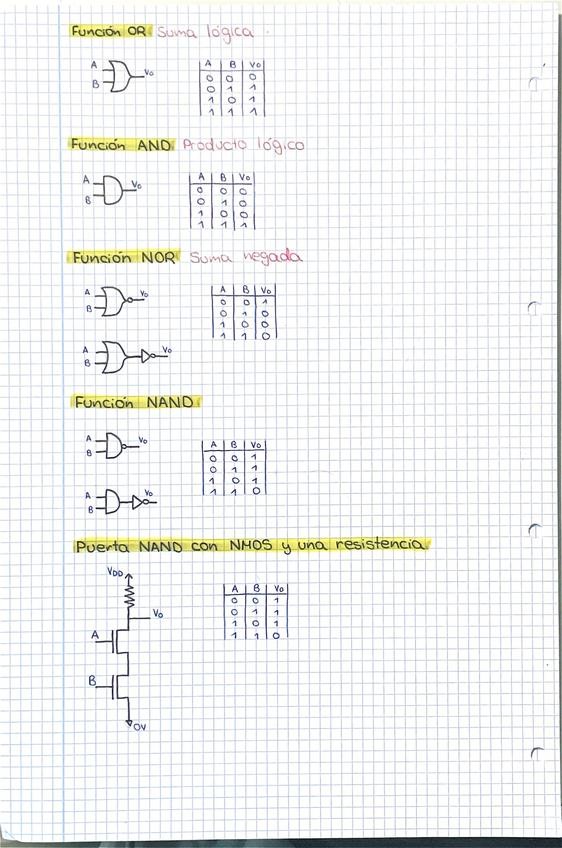 Función OR Suma lógica
A
B
Vo
A B Vo
0 0 0
0 1 1
1 0 1
1 1 1
Función AND Producto lógico
A
B
Vo
A B Vo
0 0 0
0 1 0
1 0 0
1 1 1
Función NOR Suma negada
A
B
Vo
A B Vo
0 0 1
0 1 0
1 0 0
1 1 0
A
B
Vo
Función NAND
A
B
Vo
A B Vo
0 0 1
0 1 1
1 0 1
1 1 0
A
B
Vo
Puerta NAND con NMOS y una resistencia
VDD
Vo
A
B
0V
A B Vo
0 0 1
0 1 1
1 0 1
1 1 0